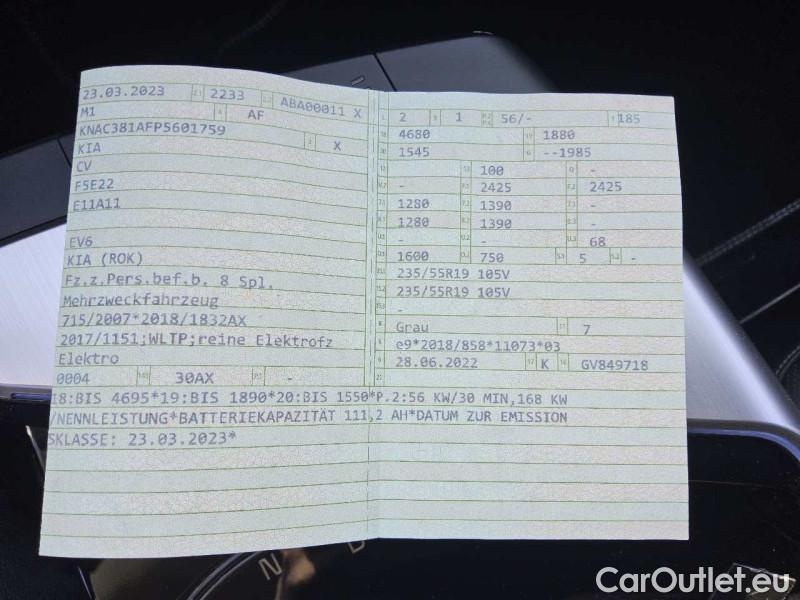 23.03.2023 2.1 2233 2.2 ABA00011 X
M1 4 AF
KNAC381AFP5601759
KIA 3 X
CV
F5E22
E11A11
EV6
KIA (ROK)
Fz.z.Pers.bef.b. 8 Spl.
Mehrzweckfahrzeug
715/2007*2018/1832AX
2017/1151;WLTP;reine Elektrofz
Elektro
0004 30AX -
L 2 9 1 56/- T 185
18 4680 19 1880
20 1545 G --1985
100 Q -
- 2425 2425
1280 1390 -
1280 1390 -
- - 68
1600 750 S.1 5 S.2 -
235/55R19 105V
235/55R19 105V
-
R Grau 11 7
K e9*2018/858*11073*03
6 28.06.2022 17 K 16 GV849718
21
18:BIS 4695*19:BIS 1890*20:BIS 1550*P.2:56 KW/30 MIN,168 KW
/NENNLEISTUNG*BATTERIEKAPAZITÄT 111,2 AH*DATUM ZUR EMISSION
SKLASSE: 23.03.2023*
N
D
CarOutlet.eu